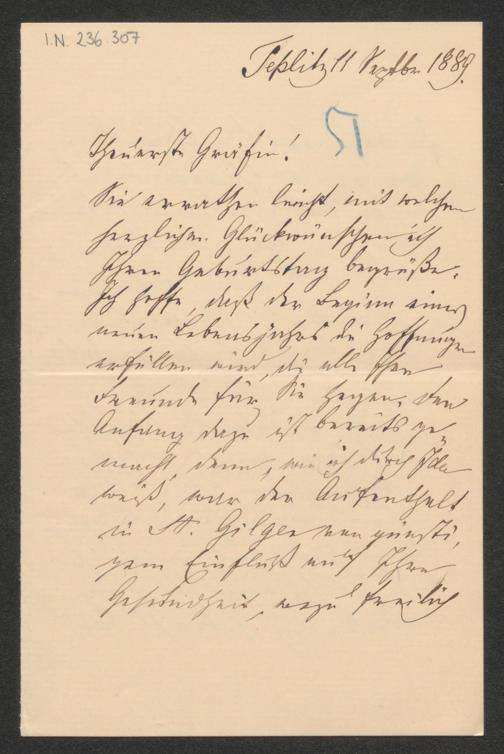 I.N. 236.307
Teplitz 11 Septber 1889.
51
Theuerste Gräfin!
Sie errathen leicht, mit welchen
herzlichen Glückwünschen ich
Ihren Geburtstag begrüße.
Ich hoffe, daß der Beginn eines
neuen Lebensjahrs die Hoffnungen
erfüllen wird, die alle Ihre
Freunde für Sie hegen. Der
Anfang dazu ist bereits ge
macht, denn, wie ich durch Ida
weiß, war der Aufenthalt
in St. Gilgen von günsti,
gem Einfluß auf Ihre
Gesundheit, wozu freilich